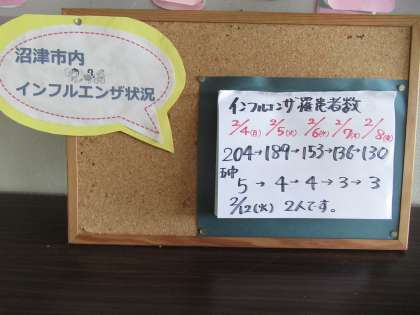 沼津市内
インフルエンザ状況
インフルエンザ罹患者数
2/4(月) 2/5(火) 2/6(水) 2/7(木) 2/8(金)
204→189→153→136→130
五中
5 → 4 → 4 → 3 → 3
2/12(火) 2人です。